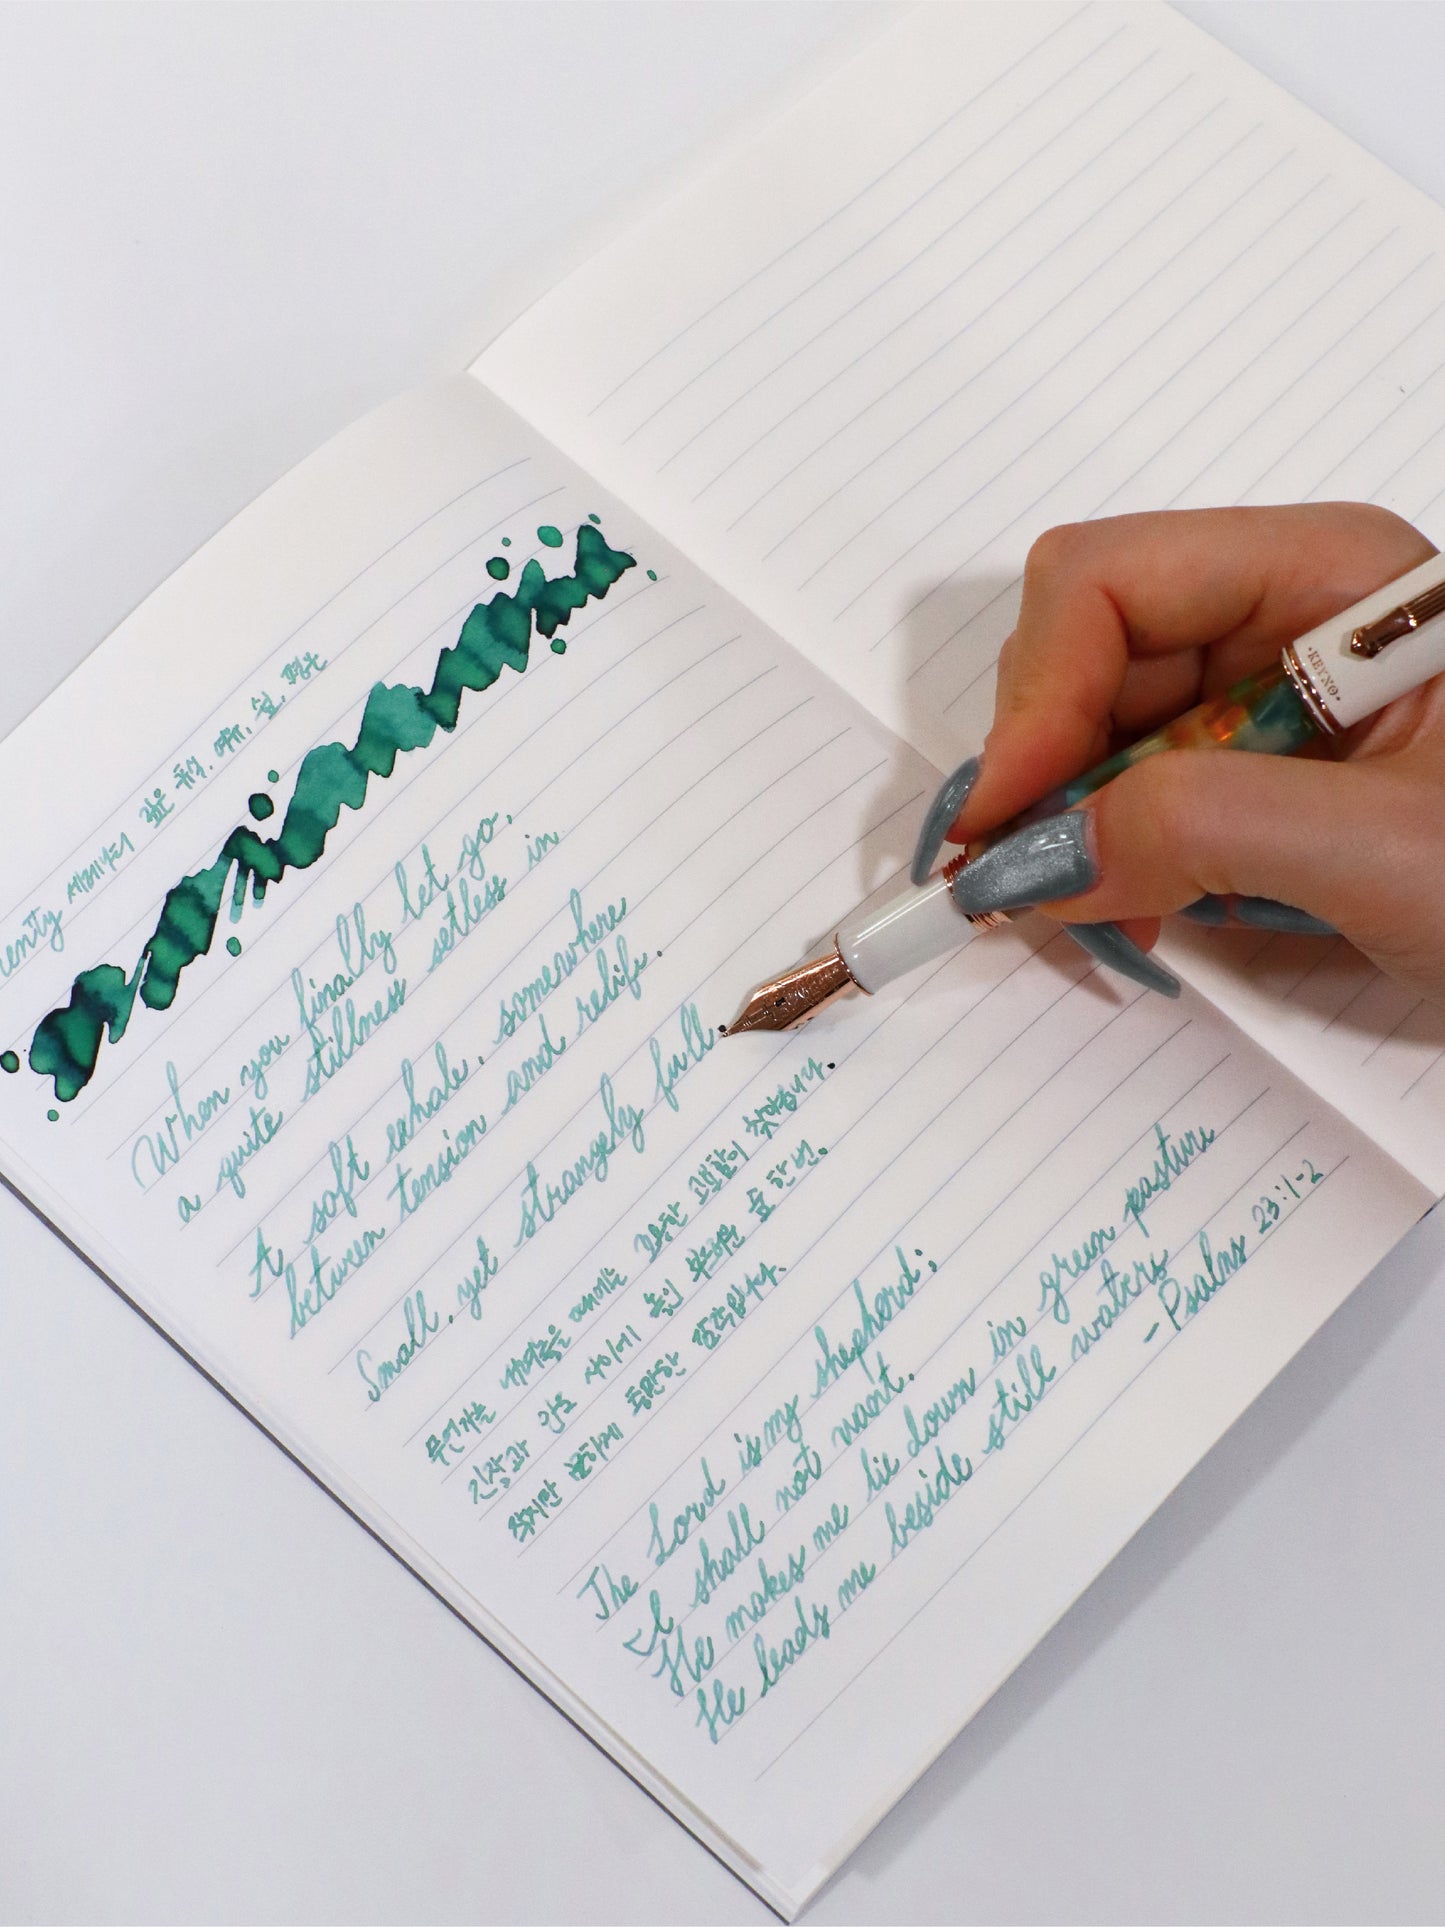 renity 세레니티 깊은 휴식, 여유, 쉼, 평온
When you finally let go,
a quite stillness setless in
A soft exhale, somewhere
between tension and relife.
Small, yet strangely full.
무언가를 내려놓을 때에는 고요한 고요함이 찾아옵니다.
긴장과 안도 사이에 놓인 부드러운 숨 한 번.
작지만 묘하게 충만한 감각입니다.
The Lord is my shepherd;
I shall not want.
He makes me lie down in green pasture
He leads me beside still waters
- Psalms 23:1-2
KEYNO